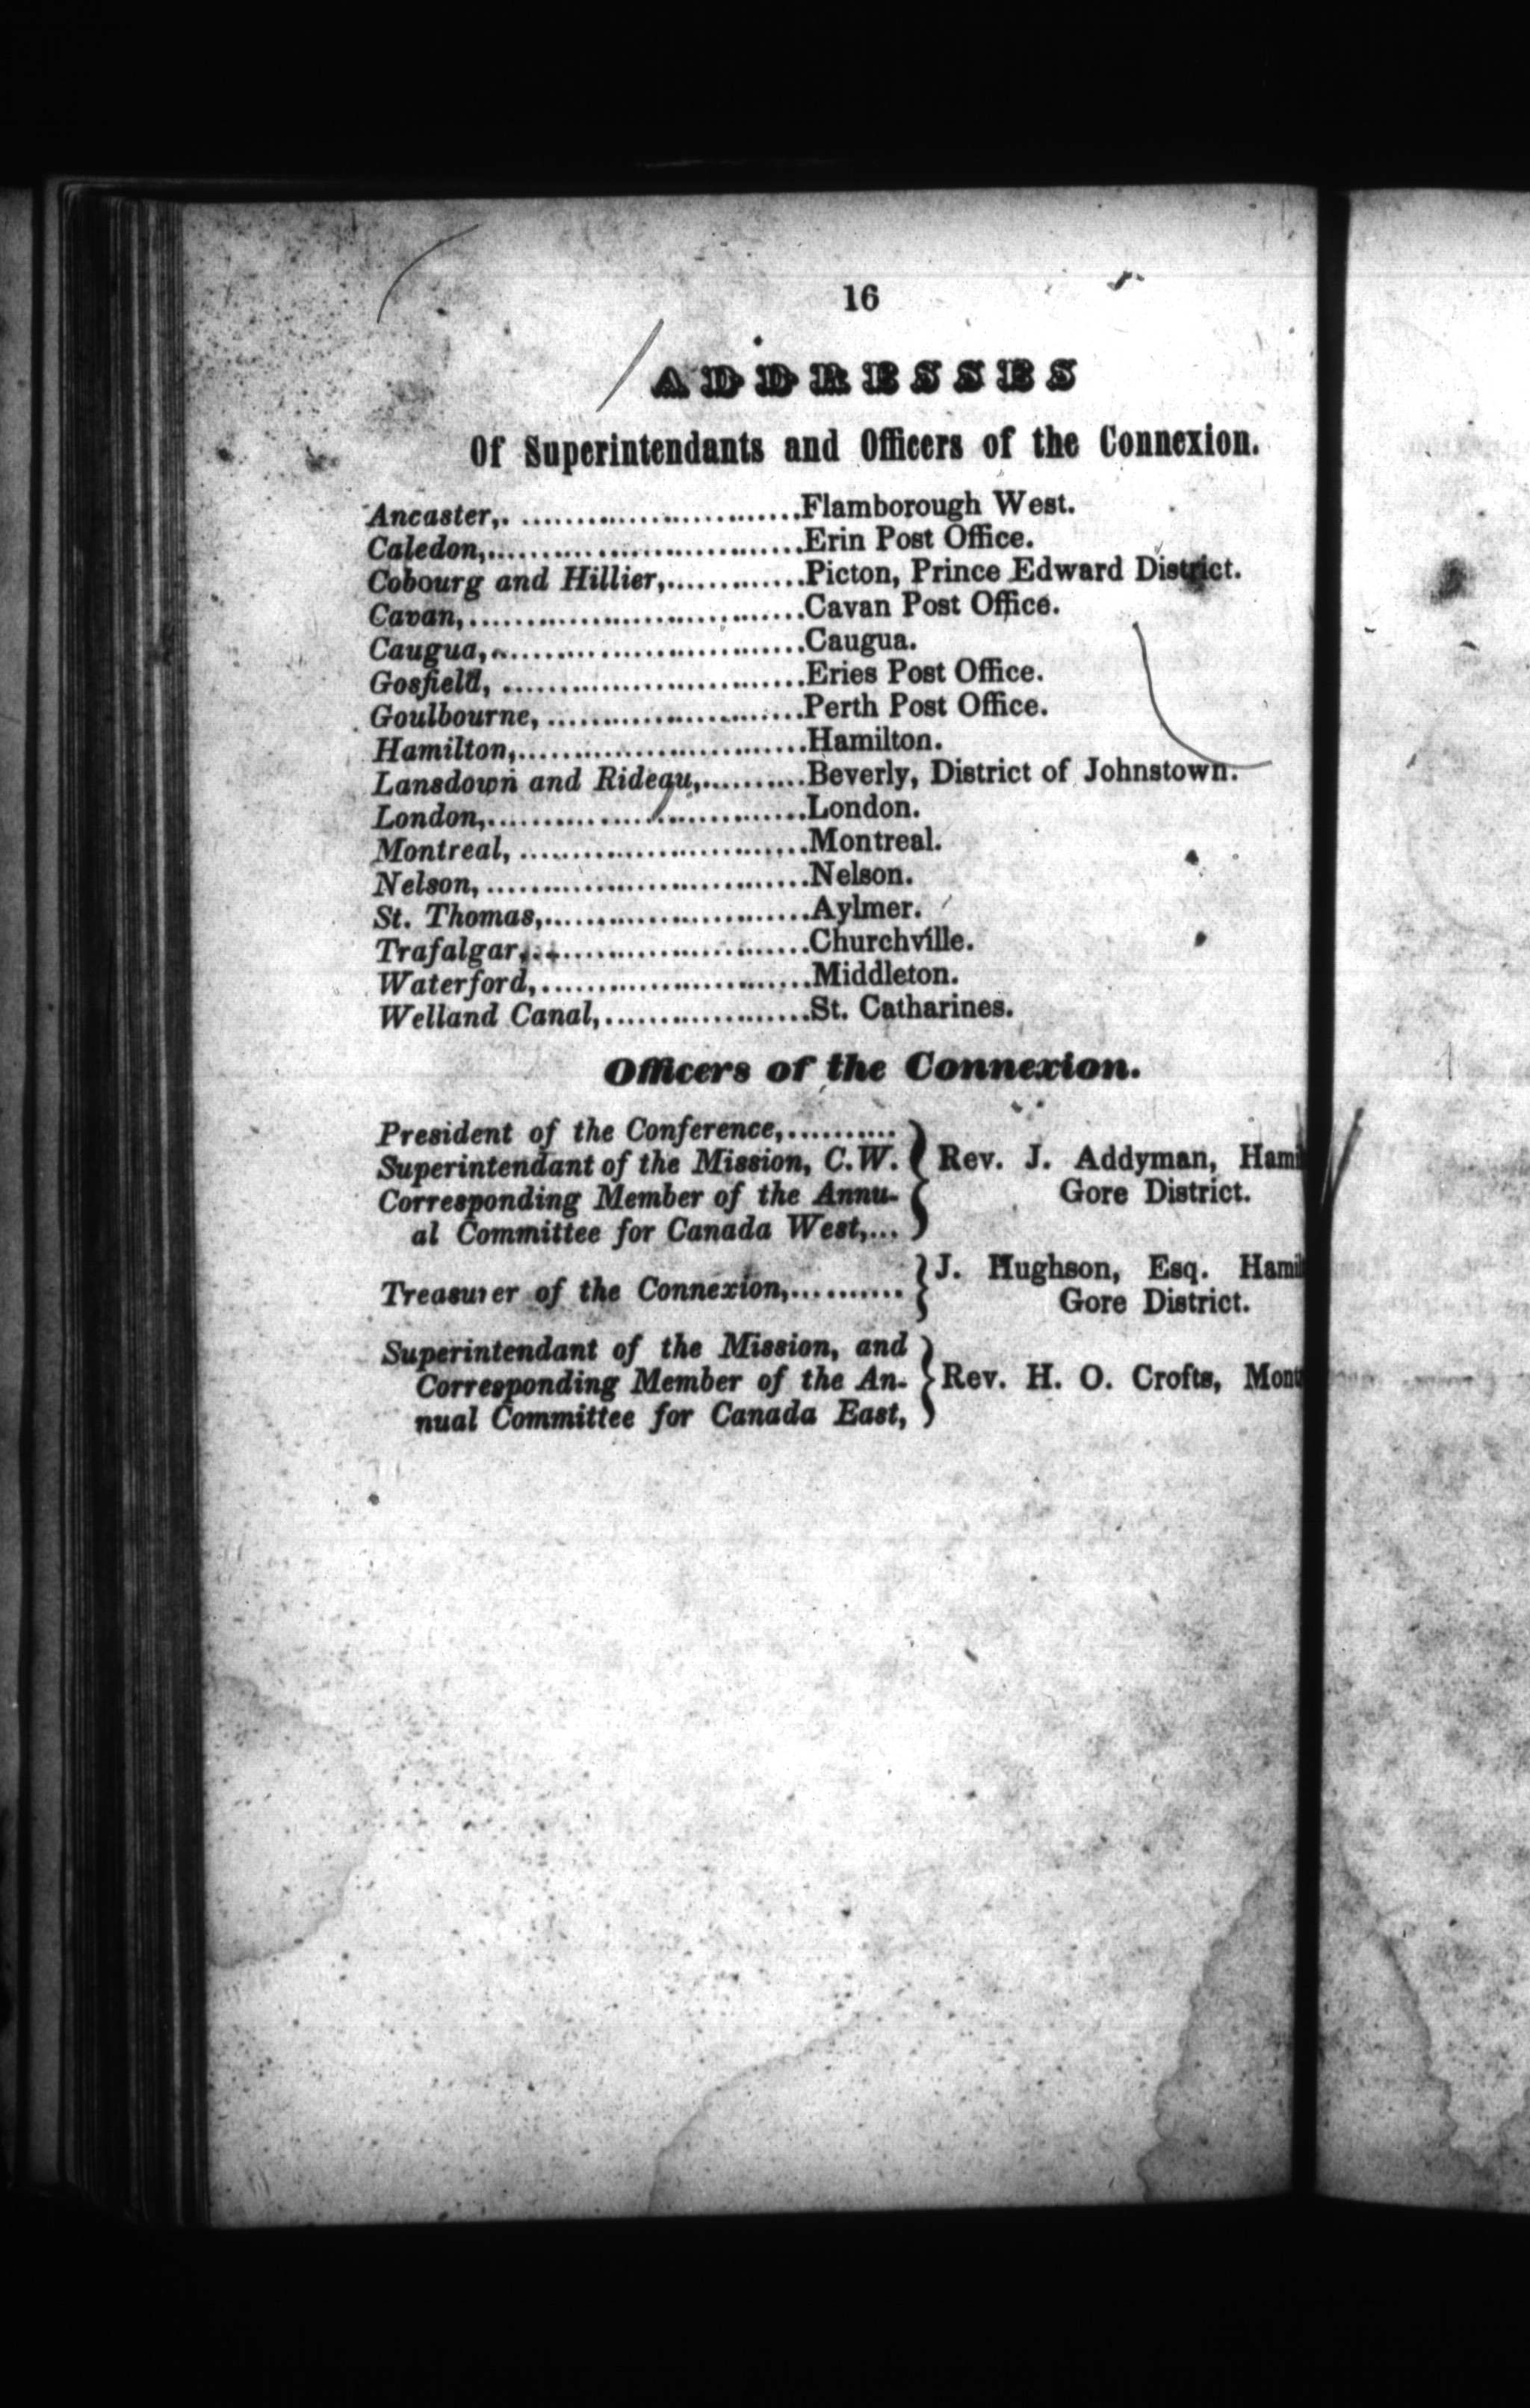 16
ADDRESSES
Of Superintendants and Officers of the Connexion.
Ancaster,. ..............................Flamborough West.
Caledon,..................................Erin Post Office.
Cobourg and Hillier,...............Picton, Prince Edward District.
Cavan,....................................Cavan Post Office.
Caugua,..................................Caugua.
Gosfield, ................................Eries Post Office.
Goulbourne, ...........................Perth Post Office.
Hamilton,...............................Hamilton.
Lansdown and Rideau,...........Beverly, District of Johnstown.
London,..................................London.
Montreal, ...............................Montreal.
Nelson, ...................................Nelson.
St. Thomas,.............................Aylmer.
Trafalgar,................................Churchville.
Waterford,..............................Middleton.
Welland Canal,......................St. Catharines.
Officers of the Connexion.
President of the Conference,...........
Superintendant of the Mission, C.W. Rev. J. Addyman, Hami
Corresponding Member of the Annu- Gore District.
al Committee for Canada West,...
J. Hughson, Esq. Hami
Treasurer of the Connexion,..........
Gore District.
Superintendant of the Mission, and
Corresponding Member of the An- Rev. H. O. Crofts, Mont
nual Committee for Canada East,